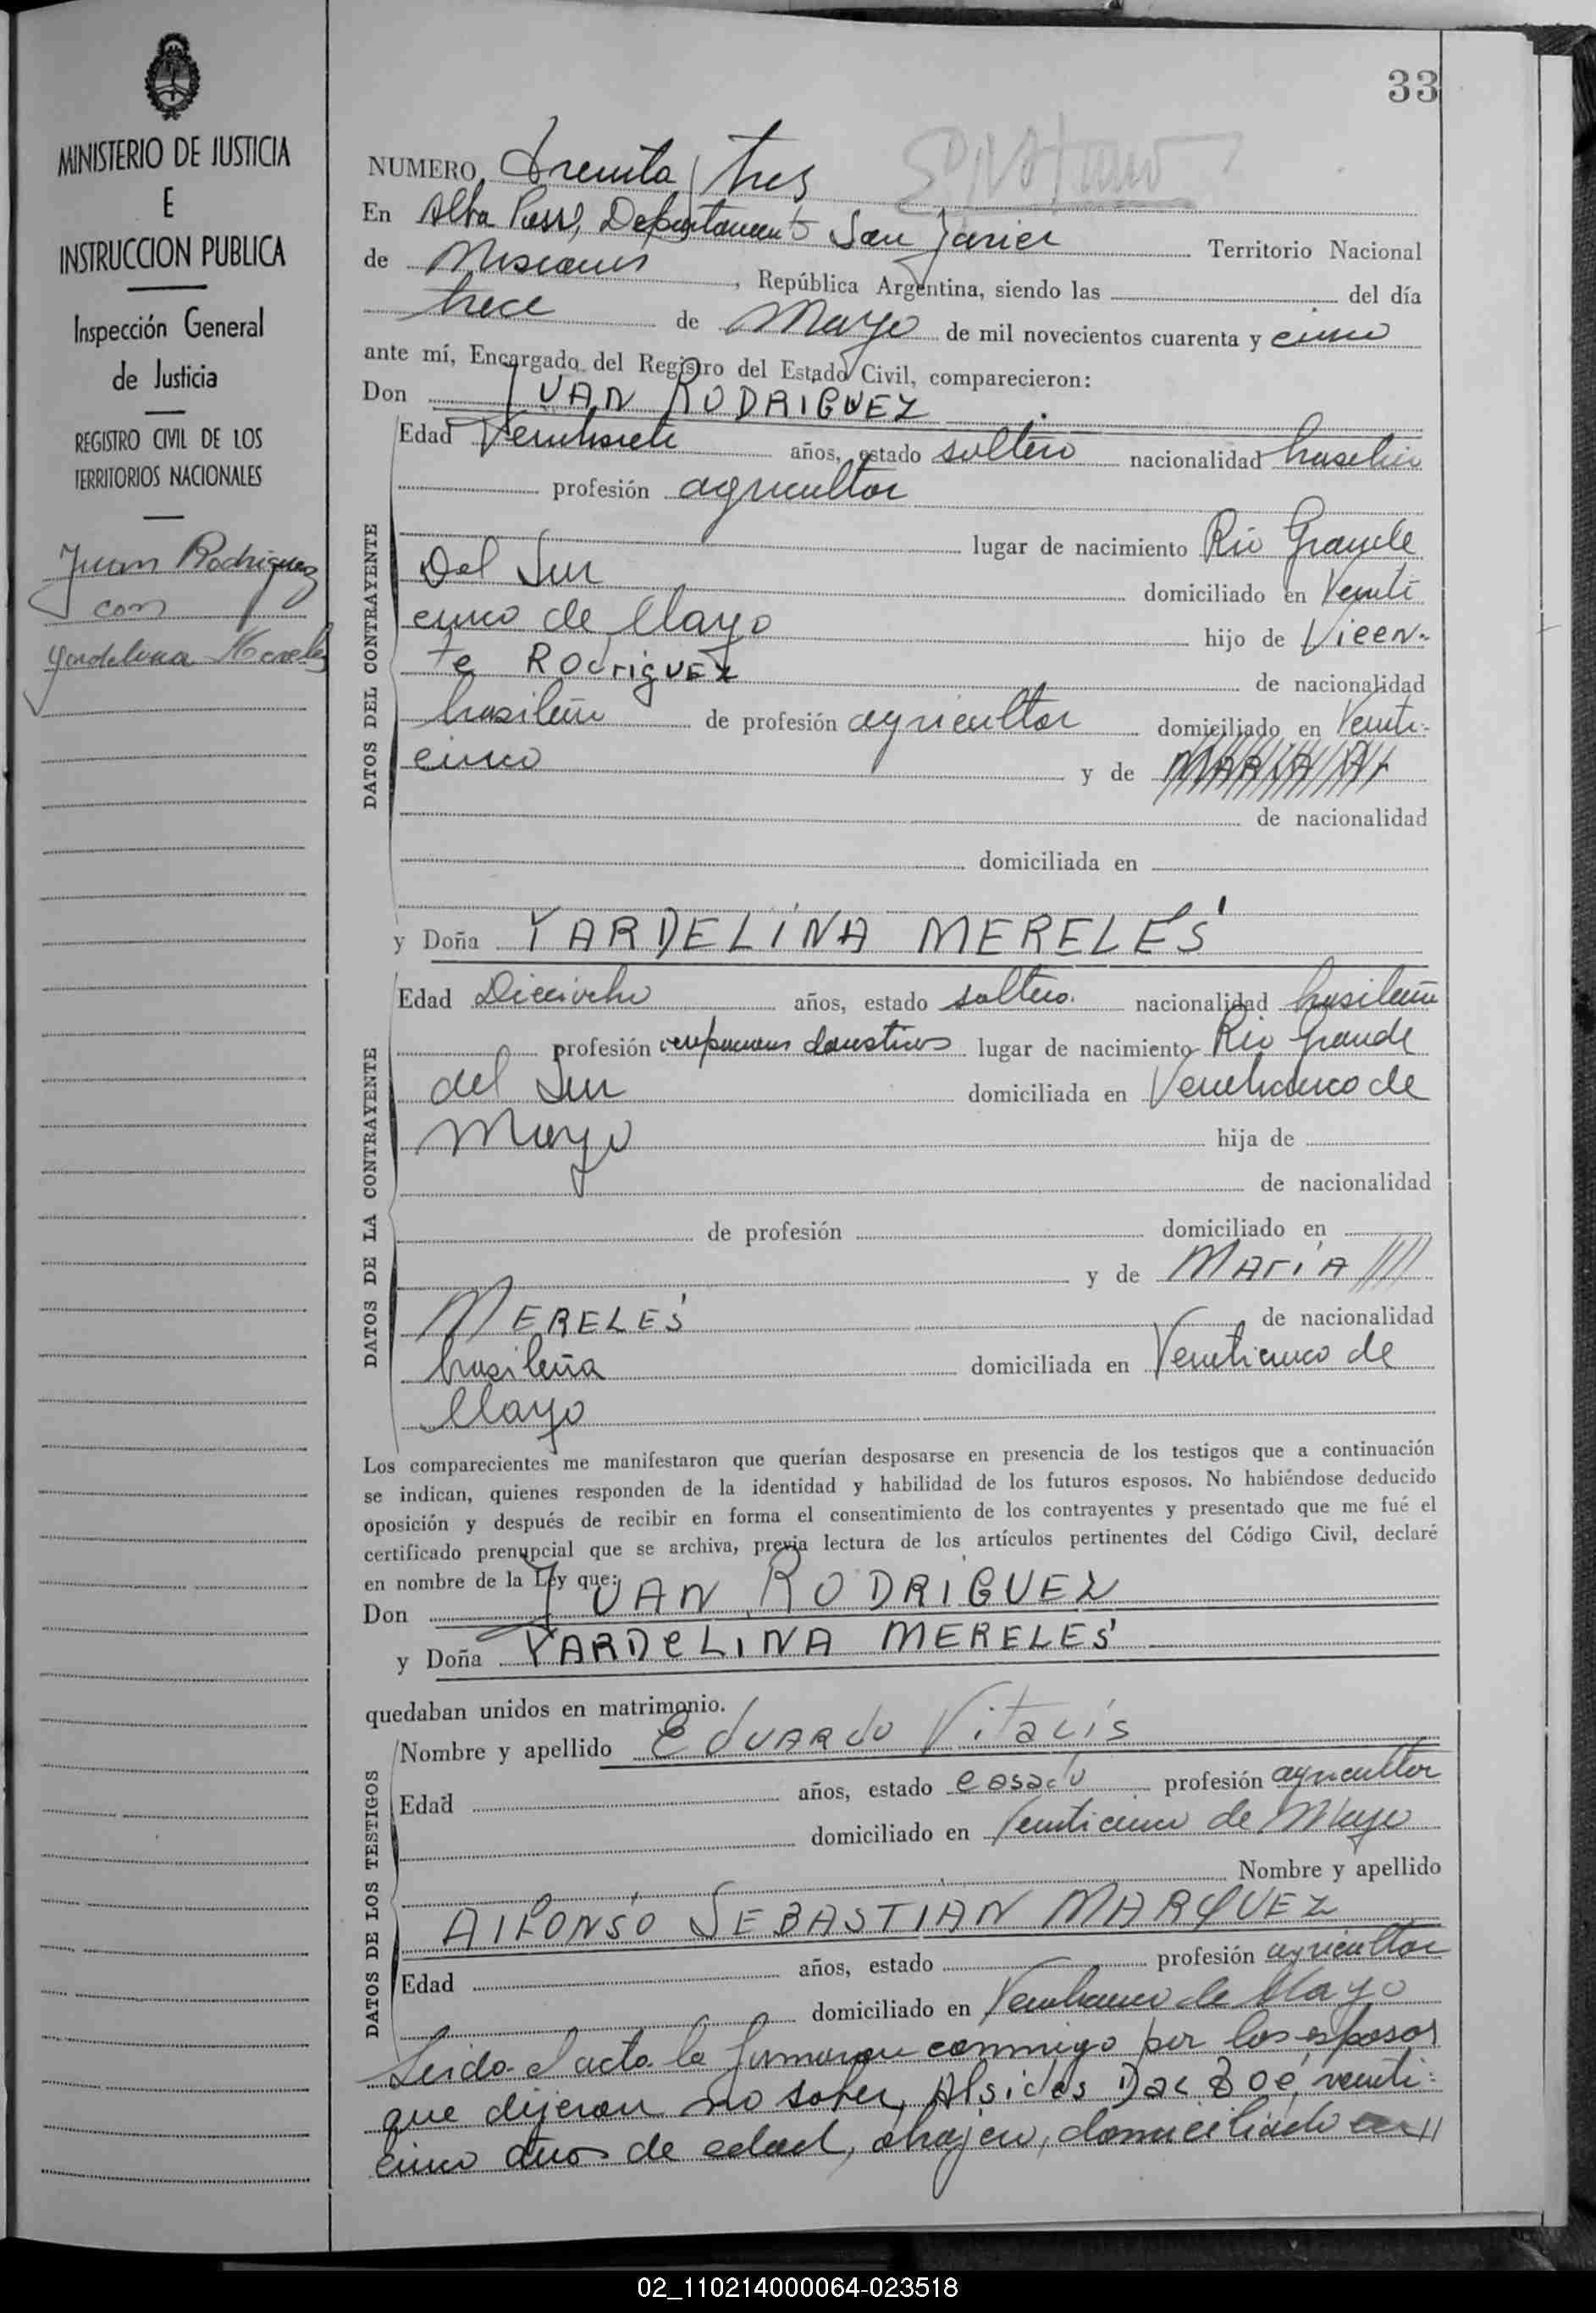 33
MINISTERIO DE JUSTICIA
E
INSTRUCCION PUBLICA
Inspección General
de Justicia
REGISTRO CIVIL DE LOS
TERRITORIOS NACIONALES
Juan Rodriguez
con
Yardelina Mereles
NUMERO treinta y tres
En Alba Posse, Departamento San Javier Territorio Nacional
de Misiones, República Argentina, siendo las del día
trece de Mayo de mil novecientos cuarenta y cinco
ante mí, Encargado del Registro del Estado Civil, comparecieron:
Don JUAN RODRIGUEZ
DATOS DEL CONTRAYENTE
Edad años, estado soltero nacionalidad brasileña
profesión agricultor
lugar de nacimiento Rio Grande
Del Sur domiciliado en Veinti
cinco de Mayo hijo de Vicen-
te RODriguEZ de nacionalidad
brasileño de profesión agricultor domiciliado en Veinti-
cinco y de MARIA
de nacionalidad
domiciliada en
y Doña YARDELINA MERELES
DATOS DE LA CONTRAYENTE
Edad Dieciocho años, estado soltera nacionalidad brasileña
profesión ocupaciones domesticas lugar de nacimiento Rio Grande
del Sur domiciliada en Veinticinco de
Mayo hija de
de nacionalidad
de profesión domiciliado en
y de MAriA
MERELES de nacionalidad
brasileña domiciliada en Veinticinco de
Mayo
Los comparecientes me manifestaron que querían desposarse en presencia de los testigos que a continuación
se indican, quienes responden de la identidad y habilidad de los futuros esposos. No habiéndose deducido
oposición y después de recibir en forma el consentimiento de los contrayentes y presentado que me fué el
certificado prenupcial que se archiva, previa lectura de los artículos pertinentes del Código Civil, declaré
en nombre de la Ley que:
Don JUAN RODRIGUEZ
y Doña YARDeLINA MERELES
quedaban unidos en matrimonio.
DATOS DE LOS TESTIGOS
Nombre y apellido EDUARDO Vitalis
Edad años, estado casado profesión agricultor
domiciliado en Veinticinco de Mayo
Nombre y apellido
AlFONSO SEBASTIAN MARQUEZ
Edad años, estado profesión agricultor
domiciliado en Veinticinco de Mayo
Leida el acta la firmaron conmigo por los esposos
que dijeron no saber, Alsides veinti-
cinco años de edad, domiciliado en //
02_110214000064-023518